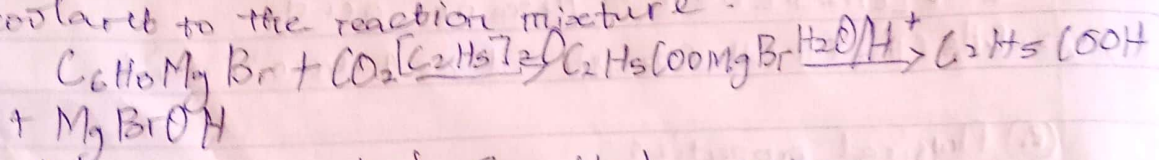 to the reaction mixture.
C6H5MgBr + CO2 [C2H5]2O C2H5COOMgBr H2O/H+ C2H5COOH
+ MgBrOH